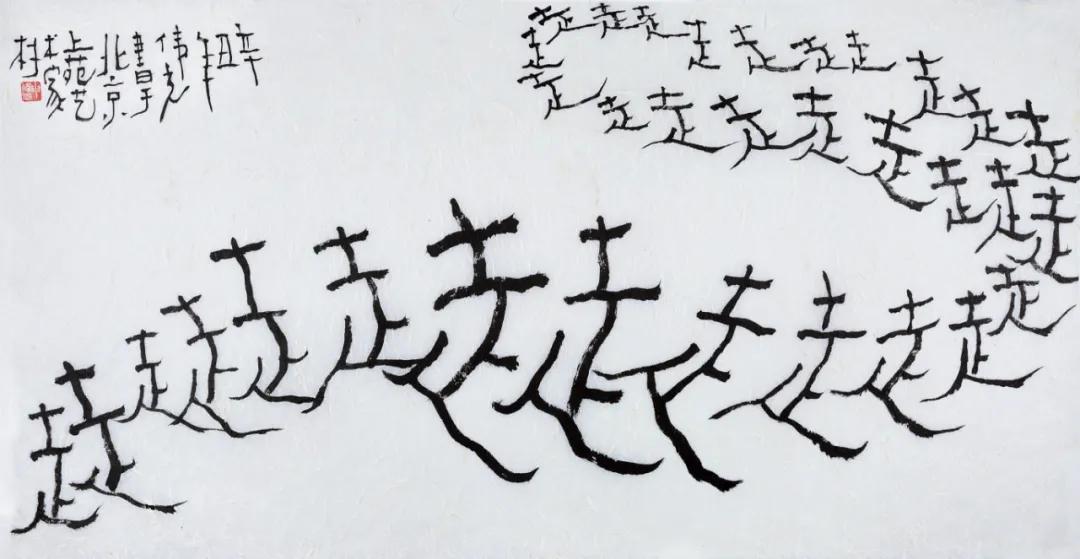 走走走走走走走走走走
走
走走走走走走走走走
走走走走走走走走走走走走走
辛丑
年
伟
書于
北京
上苑艺
术家
村